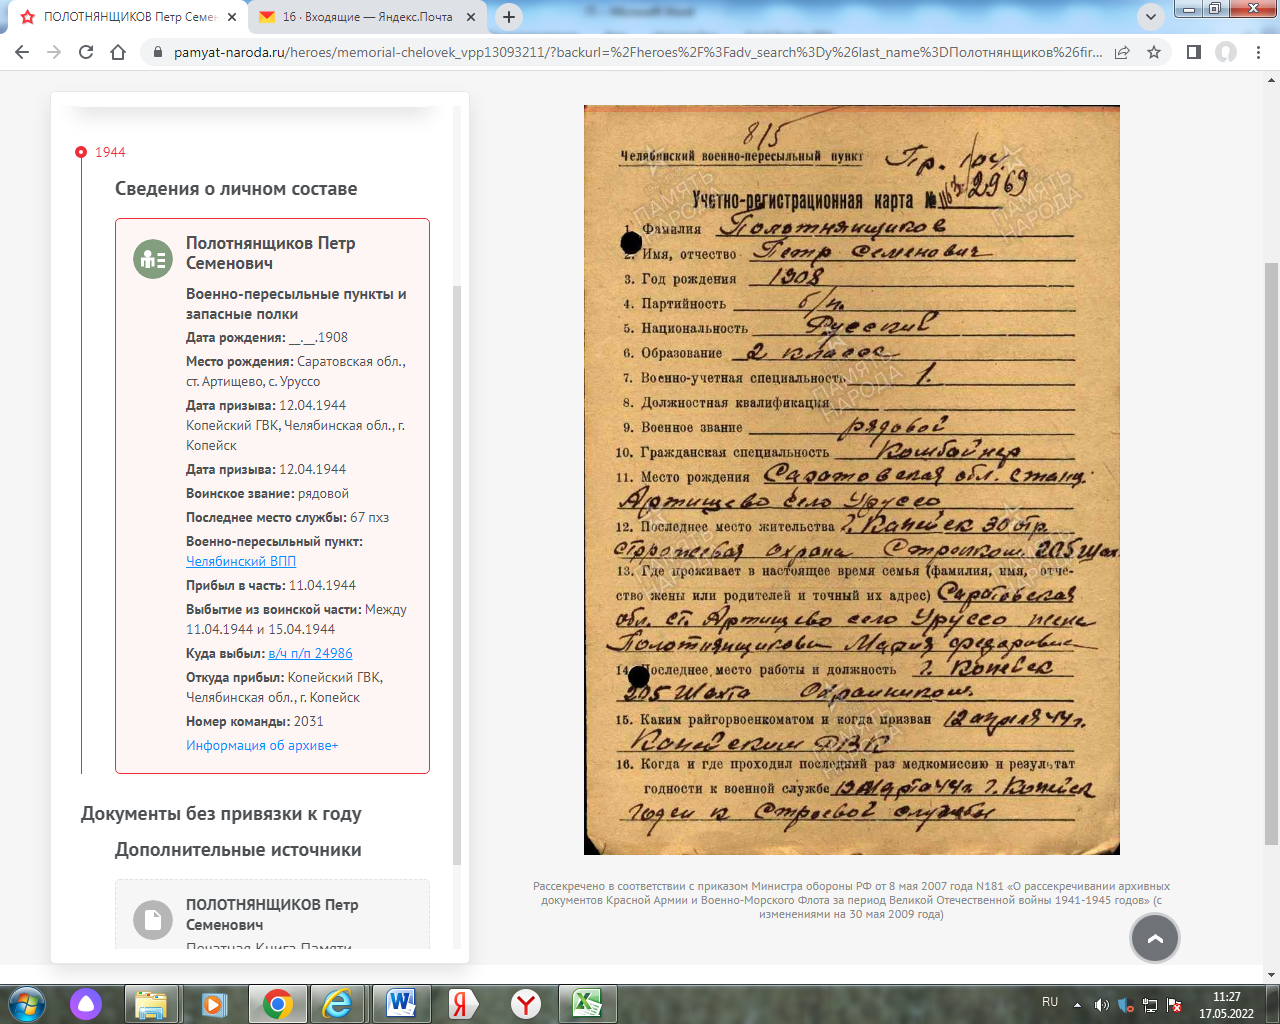 ПОЛОТНЯНЩИКОВ Петр Семен
16 · Входящие — Яндекс.Почта
pamyat-naroda.ru/heroes/memorial-chelovek_vpp13093211/?backurl=%2Fheroes%2F%3Fadv_search%3Dy%26last_name%3DПолотнянщиков%26fir...
1944
Сведения о личном составе
Полотнянщиков Петр
Семенович
Военно-пересыльные пункты и
запасные полки
Дата рождения: __.__.1908
Место рождения: Саратовская обл.,
ст. Артищево, с. Уруссо
Дата призыва: 12.04.1944
Копейский ГВК, Челябинская обл., г.
Копейск
Дата призыва: 12.04.1944
Воинское звание: рядовой
Последнее место службы: 67 пхз
Военно-пересыльный пункт:
Челябинский ВПП
Прибыл в часть: 11.04.1944
Выбытие из воинской части: Между
11.04.1944 и 15.04.1944
Куда выбыл: в/ч п/п 24986
Откуда прибыл: Копейский ГВК,
Челябинская обл., г. Копейск
Номер команды: 2031
Информация об архиве+
Документы без привязки к году
Дополнительные источники
ПОЛОТНЯНЩИКОВ Петр
Семенович
Печатная Книга Памяти
815
Челябинский военно-пересыльный пункт Пр. 104.
Учетно-регистрационная карта № 1163/2969
1. Фамилия Полотнянщиков
2. Имя, отчество Петр Семенович
3. Год рождения 1908
4. Партийность б/п.
5. Национальность Русский
6. Образование 2 класса
7. Военно-учетная специальность 1.
8. Должностная квалификация
9. Военное звание рядовой
10. Гражданская специальность Комбайнер
11. Место рождения Саратовская обл. станц.
Артищево село Уруссо
12. Последнее место жительства г. Капейск 30 отр.
сторожевая охрана Стройком. 205 Шах.
13. Где проживает в настоящее время семья (фамилия, имя, отче-
ство жены или родителей и точный их адрес) Саратовская
обл. ст. Артищево село Уруссо жена
Полотнянщикова Мария Федоровна
14. Последнее место работы и должность г. Копейск
205 Шахта Охранником.
15. Каким райгорвоенкоматом и когда призван 12 апреля 44 г.
Копейским РВК
16. Когда и где проходил последний раз медкомиссию и результат
годности к военной службе 19 Марта 44 г. г. Копейск
годен к Строевой службы
ПАМЯТЬ
НАРОДА
Рассекречено в соответствии с приказом Министра обороны РФ от 8 мая 2007 года N181 «О рассекречивании архивных
документов Красной Армии и Военно-Морского Флота за период Великой Отечественной войны 1941-1945 годов» (с
изменениями на 30 мая 2009 года)
RU
11:27
17.05.2022